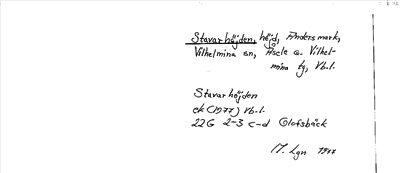 Stavarhöjden, höjd, Andersmark,
Vilhelmina sn, Åsele o. Vilhel-
mina tg, Vb.l.
Stavarhöjden
ek (1977) Vb.l.
22G 2-3 c-d Olofsbäck
M. Lgn 1977